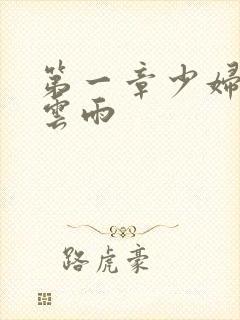 第一章少婦
雲雨
路虎豪